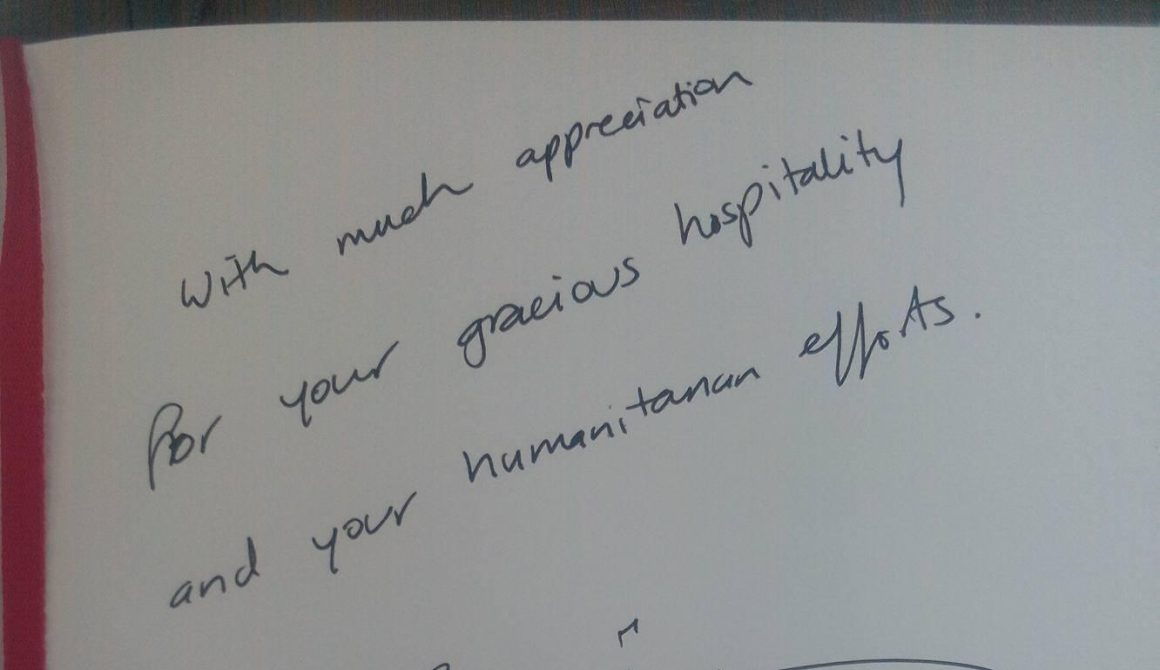 With much appreciation
for your gracious hospitality
and your humanitarian efforts.